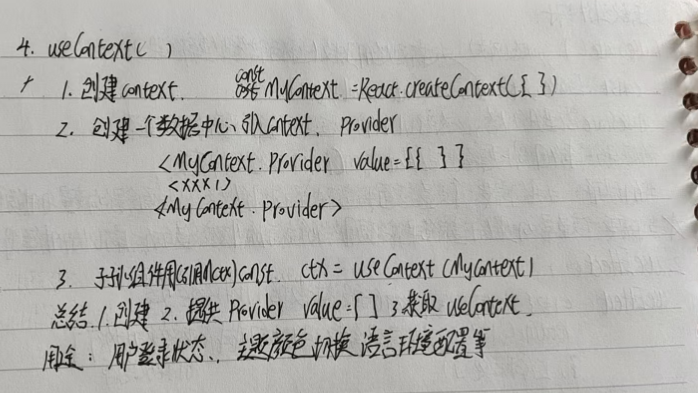 4. useContext( )
1. 创建context. const MyContext =React.createContext({ })
2. 创建一个数据中心、引入Context. Provider
<MyContext.Provider value={{ }}
<XXX1>
<MyContext.Provider>
3. 子组件用(引用ctx) const ctx = useContext(MyContext)
总结 1.创建 2. 提供 Provider value={} 3 获取 useContext.
用途: 用户登录状态、主题颜色切换 语言环境配置等